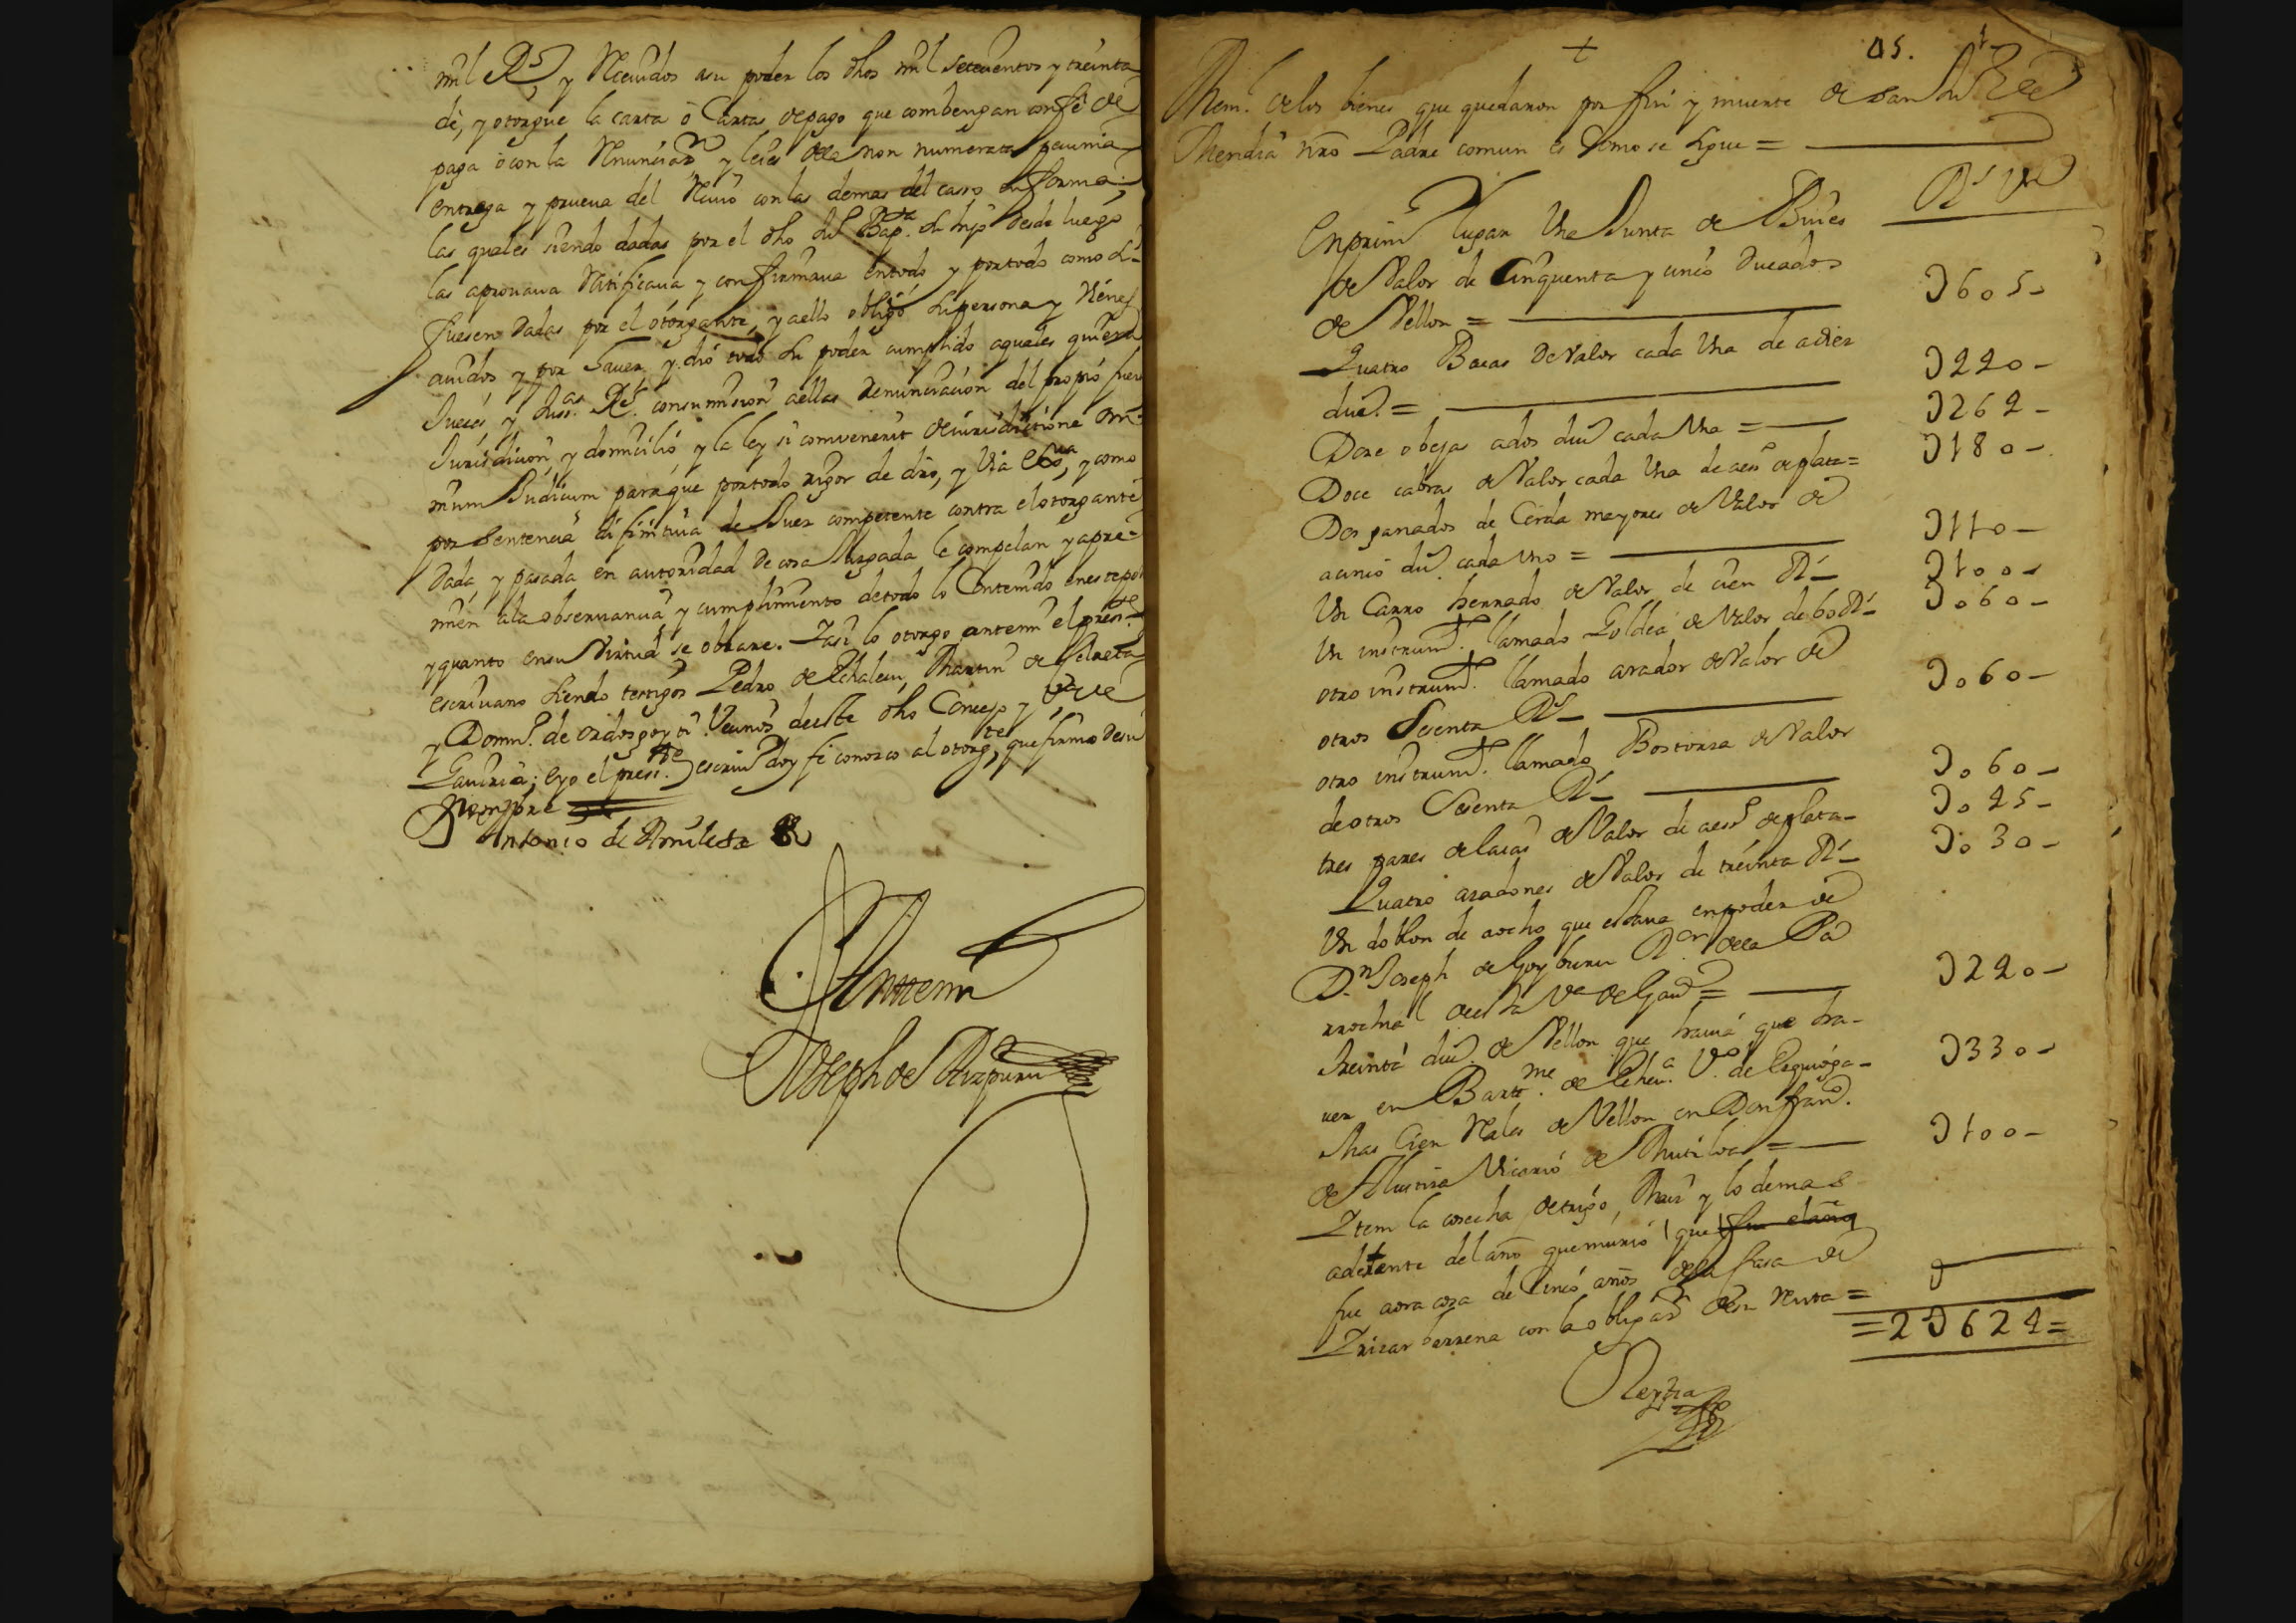 mil R.s, y Receuidos asu poder los dhos mil setecientos y treinta
dè, y otorgue la carta ò Cartas depago que combengan con fè de
paga ò con la Renunciaz.on y leies dela non numerata pecunia
entrega y prueua del Reciuo con las demas del caso en forma;
las quales siendo dadas por el dho Ju.o Bap.ta su hijo desde luego
las aprouaua Ratificaua y confirmaua entodo y portodo como si
fuesen dadas por el otorgante, y aello obligò su persona y vienes
auidos y por hauer y diò todo su poder cumplido aquales quiera
Jueces y Jus.as R.s consumision aellas Renunciacion del propio fuero
Jurisdicion, y domicilio y la ley si convenerit de jurisdictione om-
nium Judicum paraque portodo rigor de dro, y via ex.va, y como
por sentencia difinitiua de Juez competente contra el otorgante
dada, y pasada en autoridad de cosa Juzgada le compelan y apre-
mien ala obseruancia y cumplimiento detodo lo Contenido eneste po.r
y quanto ensu virtud se obrare. Y asi lo otorgo antemi el pres.te
escriuano siendo testigos Pedro de Echaleu, Martin de
y Domin.o de ordosgoyti Vecinos deeste dho Concejo y V.a de
Gauiria; e yo el pres.te escriu.o doy fe conozco al otorg.te, que firmo desu
nombre
Antonio de Amileta
Antemi
Joseph de Aizpuru
05.
Mem.l delos bienes que quedaron por fin y muerte de
Mendia nro Padre comun es como se sigue =
R.s V.n
En primer lugar Una Junta de Bueies
de Valor de Cinquenta y cinco ducados
de Vellon = U605-
Quatro Bacas de valor cada Una de adiez
du.s = U220-
Doze obejas ados du.s cada Una = U262-
Doce cabras de Valor cada Una de aes.o de plata = U180-
Dos ganados de Cerda mayores de Valor de
acinco du.s cada uno = U110-
Un Carro herrado de Valor de cien R.s U100-
Un instrum.to llamado Goldea de Valor de 60 R.s U060-
otro instrum.to llamado arador de Valor de
otros Sesenta R.s U060-
otro instrum.to llamado Bostorza de Valor
de otros Sesenta R.s U060-
tres pares de laias de Valor de aes.o de plata U025-
Quatro azadones de Valor de treinta R.s U030-
Un doblon de aocho que estaua enpoder de
D.n Joseph de Goyburu R.or dela Pa
rrochial deesta V.a de Gau.a = U220-
Treinta du.s de Vellon que hauia que ha-
uer en Bart.me de Echeu.a V.o de Ezquioga - U330-
Mas Cien Reales de Vellon en Don fran.co
de Alustiza Vicario de Mutiloa = U100-
Ytem la cosecha detrigo, Maiz y lo demas
adetante del año quemurio que
fue aora cosa de cinco años dela Casa de
Yrizar berrena con la obligaz.on desu Renta = U
=2U624=